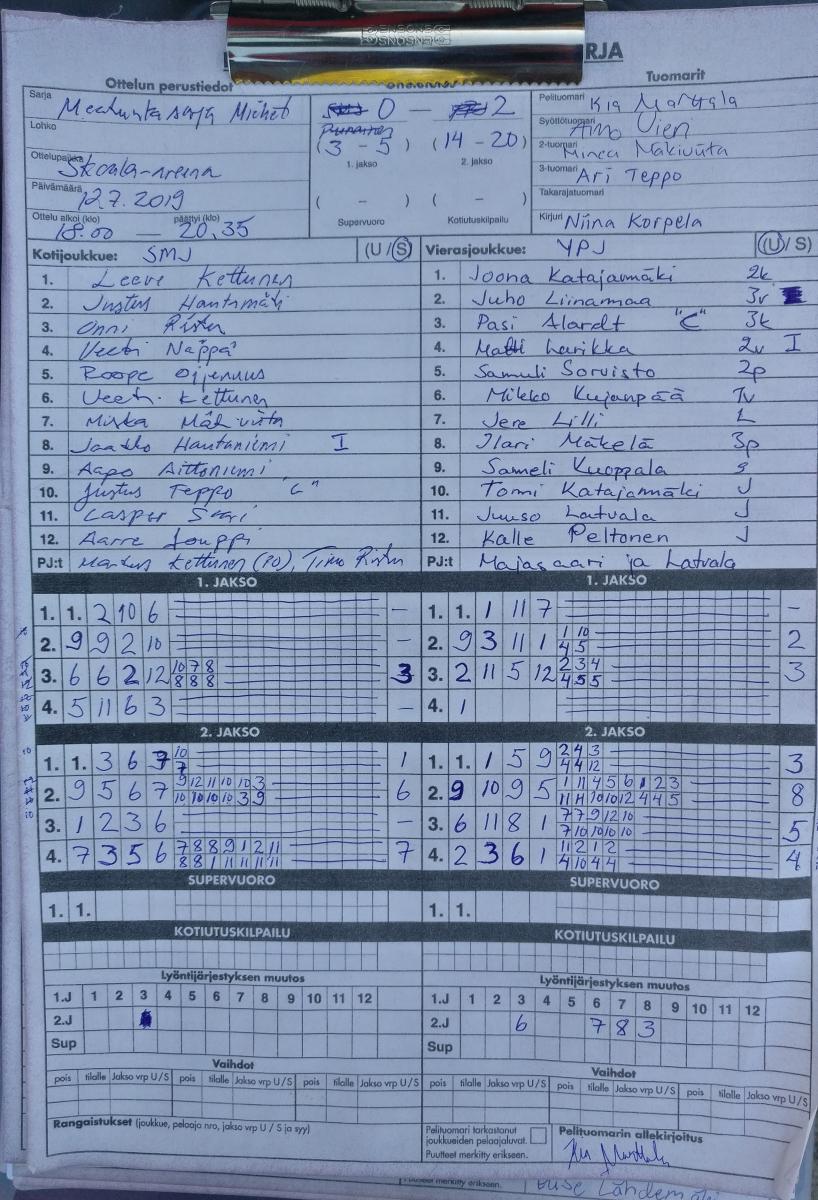 RJA
Ottelun perustiedot
Tuomarit
Sarja
Miehet
0 — 2
Pelituomari Kia Marttala
Lohko
(3 - 5) (14 - 20)
1. jakso 2. jakso
Syöttötuomari Aino Vieri
2-tuomari Minea Mäkiviita
Ottelupaikka
Skoala-areena
3-tuomari Ari Teppo
Päivämäärä
12.7.2019
( - ) ( - )
Takarajatuomari
Ottelu alkoi (klo) päättyi (klo)
18.00 — 20.35
Supervuoro Kotiutuskilpailu
Kirjuri Niina Korpela
Kotijoukkue: SMJ (U / S)
1. Leevi Kettunen
2. Justus Hautamäki
3. Onni
4. Veeti Näppä
5. Roope
6. Veeti Kettunen
7. Miska Mäkiviita
8. Jaakko Hautaniemi I
9. Aapo Aittoniemi
10. Justus Teppo "C"
11. Casper
12. Aarre Louppi
PJ:t Markus Kettunen (PO), Timo
Vierasjoukkue: YPJ (U / S)
1. Joona Katajamäki 2k
2. Juho Liinamaa 3v
3. Pasi Alardt "C" 3k
4. Matti Larikka 2v I
5. Samuli Sorvisto 2p
6. Mikko Kujanpää 1v
7. Jere Lilli L
8. Ilari Mäkelä 3p
9. Sameli Kuoppala s
10. Tomi Katajamäki J
11. Juuso Latvala J
12. Kalle Peltonen J
PJ:t Majasaari ja Latvala
1. JAKSO
1. 1. 2 10 6 –
2. 9 9 2 10 –
3. 6 6 2 12 10 7 8 3
8 8 8
4. 5 11 6 3 –
1. JAKSO
1. 1. 1 11 7 –
2. 9 3 11 1 1 10 2
4 5
3. 2 11 5 12 2 3 4 3
4 5 5
4. 1
2. JAKSO
1. 1. 3 6 9 10 1
7
2. 9 5 6 7 9 12 11 10 10 3 6
10 10 10 10 3 9
3. 1 2 3 6 –
4. 7 3 5 6 7 8 8 9 1 2 11 7
8 8 1 11 11 11 11
2. JAKSO
1. 1. 1 5 9 2 4 3 3
4 4 12
2. 9 10 9 5 1 11 4 5 6 1 2 3 8
11 11 10 10 12 4 4 5
3. 6 11 8 1 7 7 9 12 10 5
7 10 10 10 10
4. 2 3 6 1 11 2 1 2 4
4 10 4 4
SUPERVUORO SUPERVUORO
1. 1. 1. 1.
KOTIUTUSKILPAILU KOTIUTUSKILPAILU
Lyöntijärjestyksen muutos
1.J 1 2 3 4 5 6 7 8 9 10 11 12
2.J
Sup
Lyöntijärjestyksen muutos
1.J 1 2 3 4 5 6 7 8 9 10 11 12
2.J 6 7 8 3
Sup
Vaihdot Vaihdot
pois tilalle Jakso vrp U / S pois tilalle Jakso vrp U / S pois tilalle Jakso vrp U / S
pois tilalle Jakso vrp U / S pois tilalle Jakso vrp U / S pois tilalle Jakso vrp U / S
Rangaistukset (joukkue, pelaaja nro, jakso vrp U / S ja syy)
Pelituomari tarkastanut
joukkueiden pelaajaluvat.
Puutteet merkitty erikseen.
Pelituomarin allekirjoitus